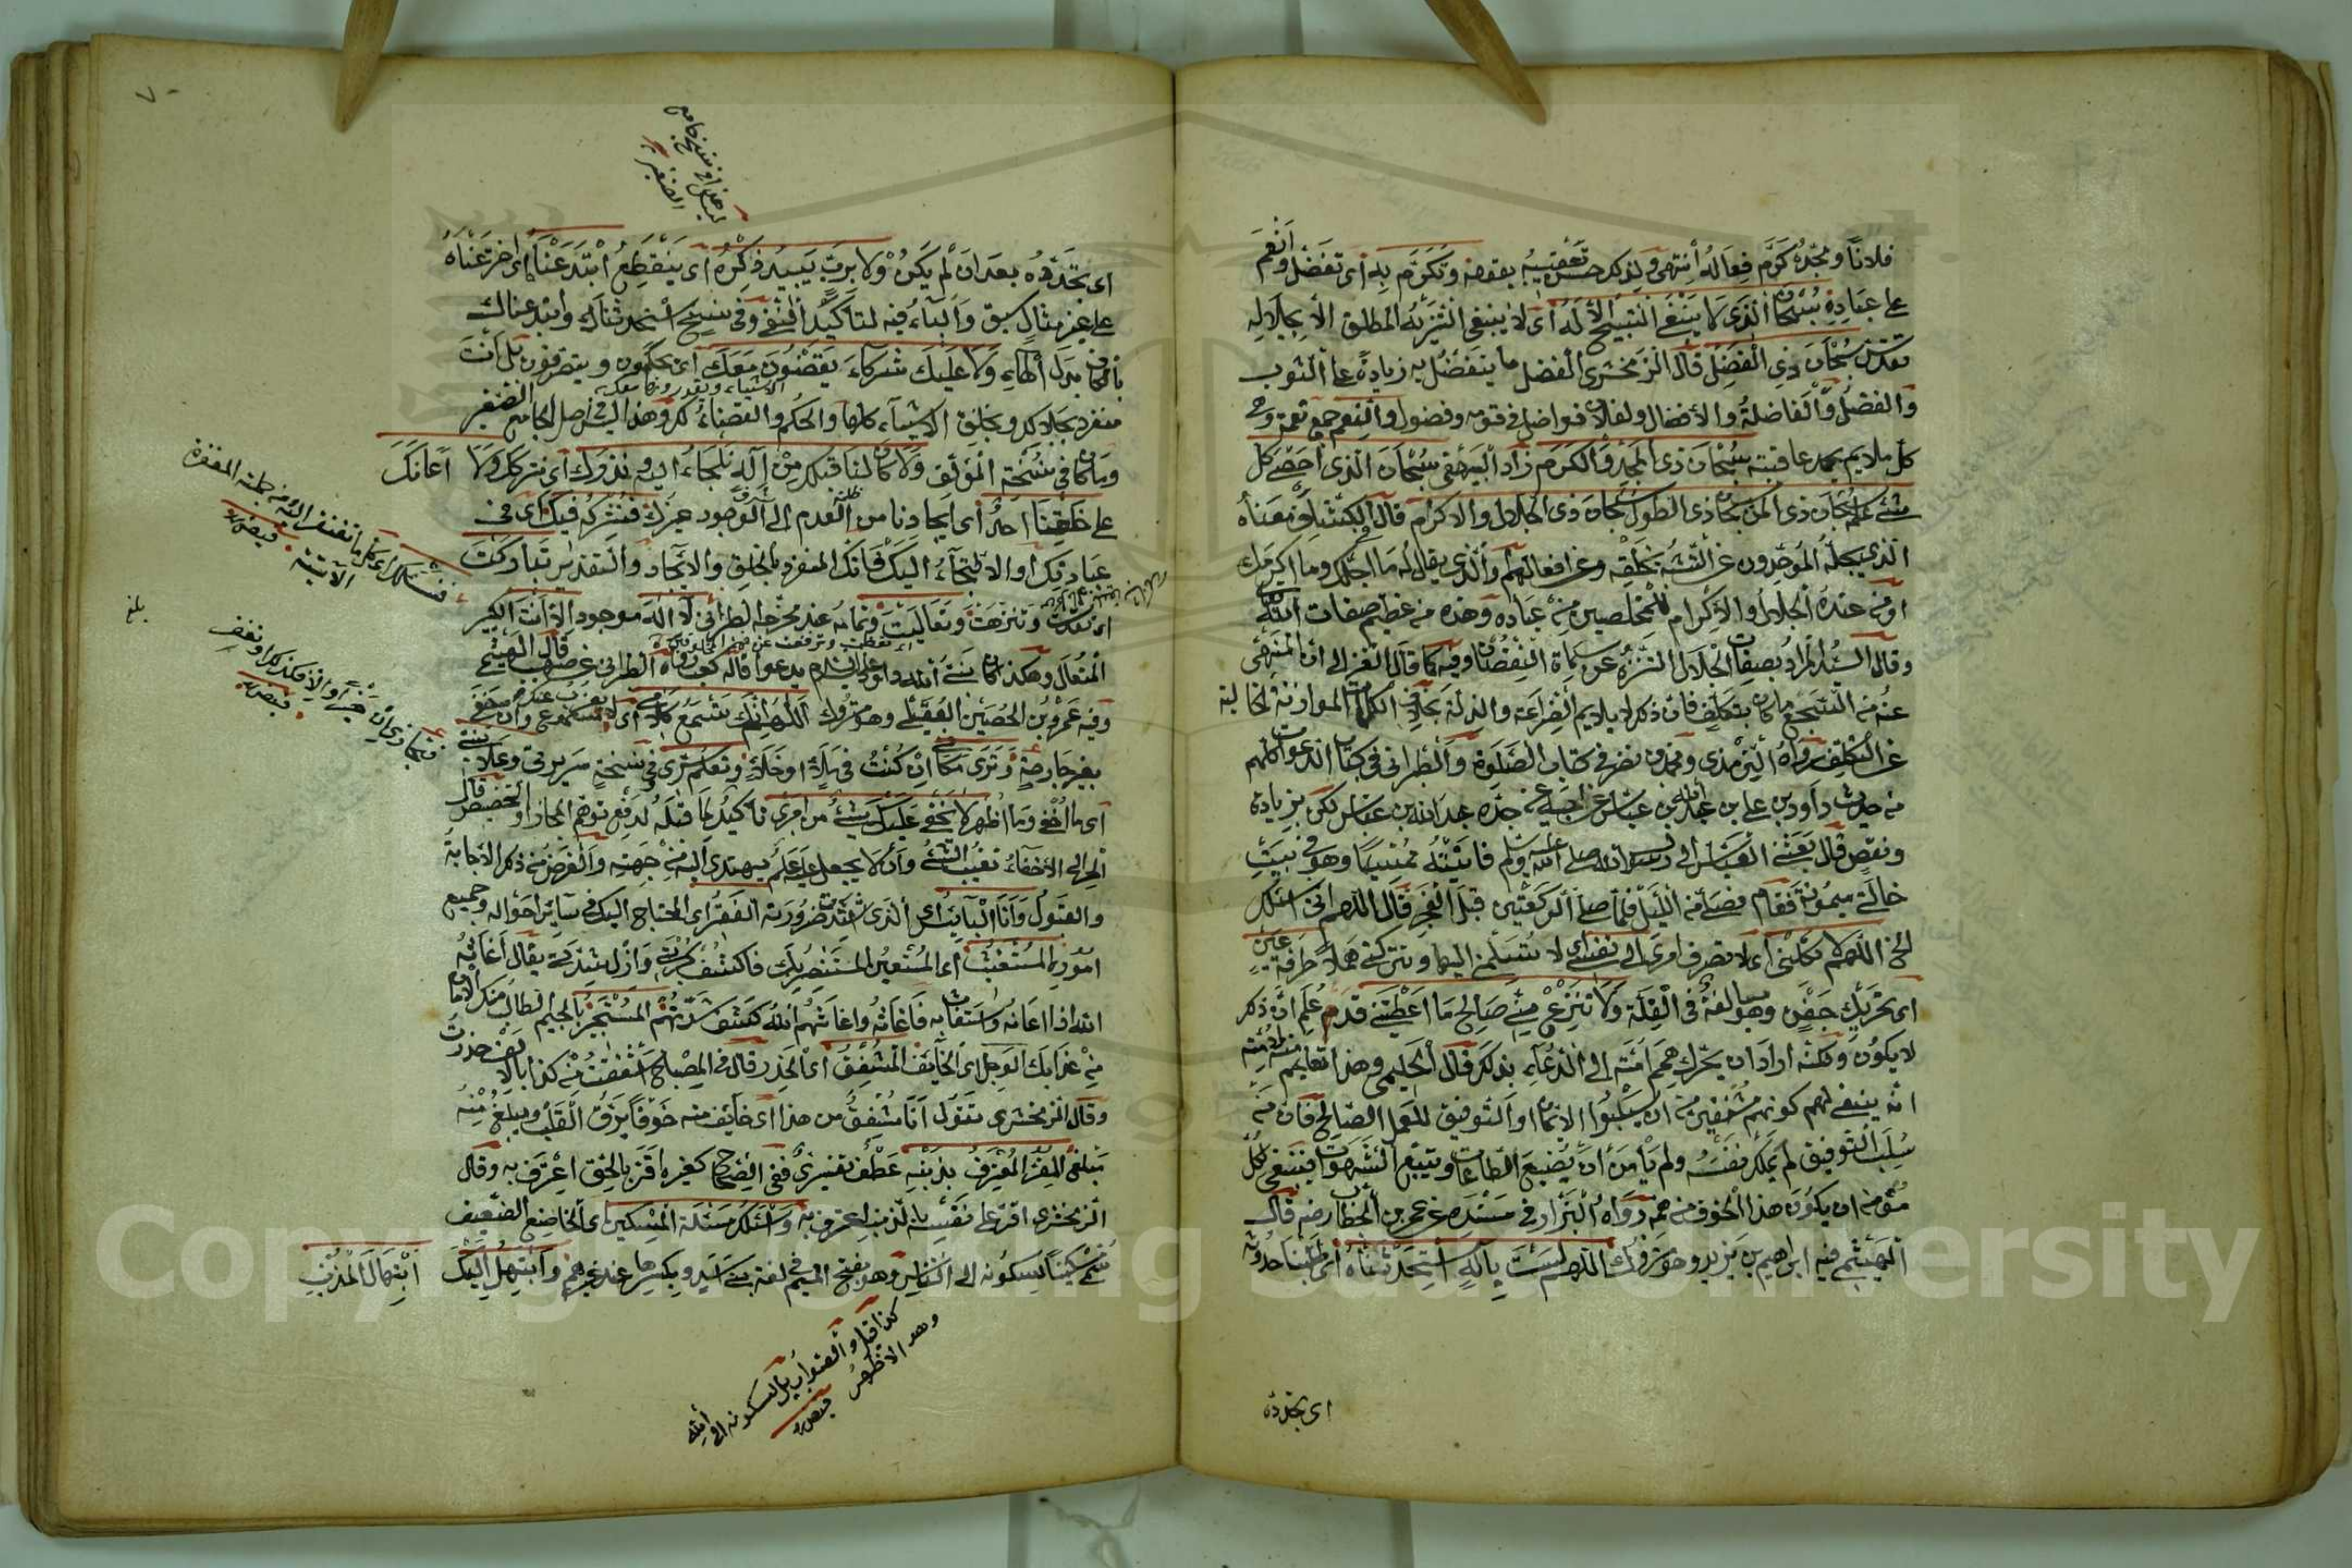 فلانا ومجده كرم فعاله انتهى ولذكر حسن تعقيبه بقوله وتكرم به اى تفضل وانعم
على عباده سبحان الذى لا ينبغى التسبيح الا له اى لا ينبغى التنزيه المطلق الا بجلاله
تقدس سبحان ذى الفضل قال الزمخشرى الفضل ما يتفضل به زيادة على الثوب
والفضل والفاضلة والافضال ولفلان فواضل فى قومه وفضول والنعم جمع نعمة وهى
كل ملايم يحمد عاقبته سبحان ذى المجد والكرم زاد البيهقى سبحان الذى احصى كل
شئ علمه سبحان ذى المن سبحان ذى الطول سبحان ذى الجلال والاكرام قال الكشاف معناه
الذى يجله الموحدون عن التشبه بخلقه وعن افعالهم والذى يقال له ما اجلك وما اكرمك
او من عنده الجلال والاكرام للمخلصين من عباده وهذه من عظيم صفات الله
وقال السيد المراد بصفات الجلال التنزه عن سماة النقصان وفيه كما قال الغزالى ان المنهى
عنه من التسجع ما كان بتكلف فان ذكر لا يلايم الضراعة والذلة بخلاف الكلمات الموازنة الخالية
عن التكلف رواه الترمذى ومحمد بن نصر فى كتاب الصلوة والطبرانى فى كتاب الدعوات كلهم
من حديث داود بن على بن عبد الله بن عباس عن ابيه عن جده عبد الله بن عباس لكن بزيادة
ونقص قال بعثنى العباس الى رسول الله صلى الله عليه وسلم فاتيته ممسيا وهو فى بيت
خالتى ميمونة فقام فصلى من الليل فلما صلى الركعتين قبل الفجر قال اللهم انى اسئلك
الخ اللهم لا تكلنى اى لا تصرف امرى الى نفسى اى لا تسلمنى اليها وتتركنى هملا طرفة عين
اى تحريك جفن وهو مبالغة فى القلة ولا تنزع منى صالح ما اعطيتنى قدم علم ان ذكر
لا يكون ولكنه اراد ان يحرك همم امته الى الدعاء بذلك قال الحليمى وهذا تعليم منه لامته
انه ينبغى لهم كونهم مشفقين من ان يسلبوا الايمان او التوفيق للعمل الصالح فان من
سلب التوفيق لم يملك نفسه ولم يأمن ان يضيع الطاعات ويتبع الشهوات فينبغى لكل
مؤمن ان يكون هذا الخوف من همه رواه البزار فى مسنده عن عمر بن الخطاب رضه قال
الهيثمى فيه ابراهيم بن يزيد وهو متروك اللهم لست باله استحدثناه اى طلبنا حدوثه
اى تجدده
اى تجدده بعد ان لم يكن ولا برب يبيد ذكره اى ينقطع ابتدعناه اى اخترعناه
على غير مثال سبق والباء فيه لتأكيد النفى وفى نسخ استحدثناك وابتدعناك
بالكاف بدل الهاء ولا عليك شركاء يقضون معك اى يحكمون ويتصرفون بل انت
منفرد بجلالك وبخلق الاشياء كلها والحكم والقضاء لك وهذا ليس فى اصل الجامع الصغير
وما كان فى نسخة المؤلف ولا كان لنا قبلك من اله نلجاء اليه ونذرك اى نتركك ولا اعانك
على خلقنا احد اى ايجادنا من ظلمة العدم الى الوجود غيرك فنشركه فيك اى فى
عبادتك او الالتجاء اليك فانك المنفرد بالخلق والايجاد والتقدير تباركت
اى تقدست وتنزهت وتعاليت وتمامه عند مخرجه الطبرانى لا اله موجود الا انت الكبير
المتعال وهكذا كان نبى الله داود عليه السلام يدعوا قاله كعب رواه الطبرانى عن صهيب قال الهيثمى
وفيه عمرو بن الحصين العقيلى وهو متروك اللهم انك تسمع كلامى اى لا يعزب عنك مسموع وان خفى
بغير جارحة وترى مكانى ان كنت فى ملاء او خلاء وتعلم سرى وفى نسخة سريرتى وعلانيتى
اى ما اخفى وما اظهر لا يخفى عليك شئ من امرى تأكيد لما قبله لدفع توهم المجاز او التخصيص قال
الحرالى الاخفاء تغيب الشئ وان لا يجعل عليه علم يهتدى اليه من جهته والغرض من ذكر الاجابة
والقبول وانا البائس الذى اشتدت ضرورته الفقير اى المحتاج اليك فى سائر احواله وجميع
اموره المستغيث اى المستعين المستنصر بك فاكشف كربتى وازل شدتى يقال اغاثه
الله اذا اعانه واستغاث به فاغاثه واغاثهم الله كشف شدتهم المستجير بالجيم الطالب منك الامان
من عذابك الوجل اى الخائف المشفق اى الحذر قال فى المصباح اشفقت من كذا بالالف حذرت
وقال الزمخشرى تقول انا مشفق من هذا اى خائف منه خوفا يرق القلب ويبلغ منه
مبلغا المقر المعترف بذنبه عطف تفسيرى ففى الصحاح كغيره اقر بالحق اعترف به وقال
الزمخشرى اقر على نفسه بالذنب اعترف به واسئلك مسئلة المسكين اى الخاضع الضعيف
سمى مسكينا لسكونه الى الناس وهو بفتح الميم فى لغة بنى اسد وبكسرها عند غيرهم وابتهل اليك ابتهال المذنب
كذا قيل والصواب بل لسكونه الى الله
وهو الاظهر
بلغ